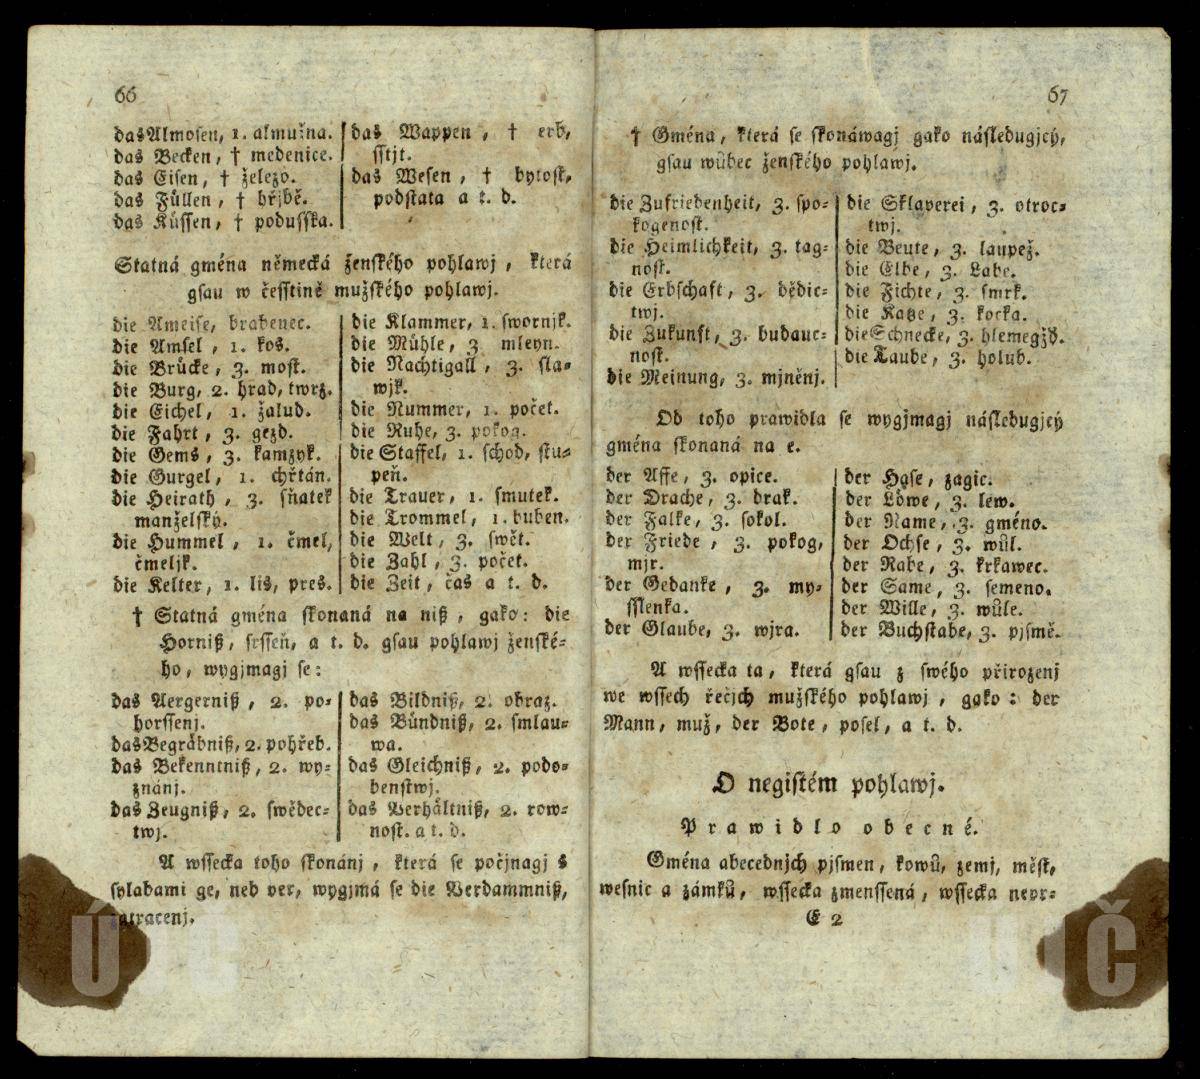 66
das Almosen, 1. almužna.
das Becken, † medenice.
das Eisen, † železo.
das Füllen, † hřjbě.
das Küssen, † podusska.
das Wappen, † erb,
sstjt.
das Wesen, † bytost,
podstata a t. d.
Statná gména německá ženského pohlawj, která
gsau w česstině mužského pohlawj.
die Ameise, brabenec.
die Amsel, 1. kos.
die Brücke, 3. most.
die Burg, 2. hrad, twrz.
die Eichel, 1. žalud.
die Fahrt, 3. gezd.
die Gems, 3. kamzyk.
die Gurgel, 1. chřtán.
die Heirath, 3. sňatek
manželský.
die Hummel, 1. čmel,
čmeljk.
die Kelter, 1. lis, pres.
die Klammer, 1. swornjk.
die Mühle, 3 mleyn.
die Nachtigall, 3. sla-
wjk.
die Nummer, 1. počet.
die Ruhe, 3. pokog.
die Staffel, 1. schod, stu-
peň.
die Trauer, 1. smutek.
die Trommel, 1. buben.
die Welt, 3. swět.
die Zahl, 3. počet.
die Zeit, čas a t. d.
† Statná gména skonaná na niß, gako: die
Horniß, srsseň, a t. d. gsau pohlawj ženské-
ho, wygjmagj se:
das Aergerniß, 2. po-
horssenj.
das Begräbniß, 2. pohřeb.
das Bekenntniß, 2. wy-
znánj.
das Zeugniß, 2. swědec-
twj.
das Bildniß, 2. obraz.
das Bündniß, 2. smlau-
wa.
das Gleichniß, 2. podo-
benstwj.
das Verhältniß, 2. row-
nost. a t. d.
A wssecka toho skonánj, která se počjnagj s
sylabami ge, neb ver, wygjmá se die Verdammniß,
zatracenj.
67
† Gména, která se skonáwagj gako následugjcý,
gsau wůbec ženského pohlawj.
die Zufriedenheit, 3. spo-
kogenost.
die Heimlichkeit, 3. tag-
nost.
die Erbschaft, 3. dědic-
twj.
die Zukunft, 3. budauc-
nost.
die Meinung, 3. mjněnj.
die Sklaverei, 3. otroc-
twj.
die Beute, 3. laupež.
die Elbe, 3. Labe.
die Fichte, 3. smrk.
die Katze, 3. kočka.
die Schnecke, 3. hlemegžď.
die Taube, 3. holub.
Od toho prawidla se wygjmagj následugjcý
gména skonaná na e.
der Affe, 3. opice.
der Drache, 3. drak.
der Falke, 3. sokol.
der Friede, 3. pokog,
mjr.
der Gedanke, 3. my-
sslenka.
der Glaube, 3. wjra.
der Hase, zagic.
der Löwe, 3. lew.
der Name, 3. gméno.
der Ochse, 3. wůl.
der Rabe, 3. krkawec.
der Same, 3. semeno.
der Wille, 3. wůle.
der Buchstabe, 3. pjsmě.
A wssecka ta, která gsau z swého přirozenj
we wssech řečjch mužského pohlawj, gako: der
Mann, muž, der Bote, posel, a t. d.
O negistém pohlawj.
Prawidlo obecné.
Gména abecednjch pjsmen, kowů, zemj, měst,
wesnic a zámků, wssecka zmenssená, wssecka nevr-
E 2
ÚČ